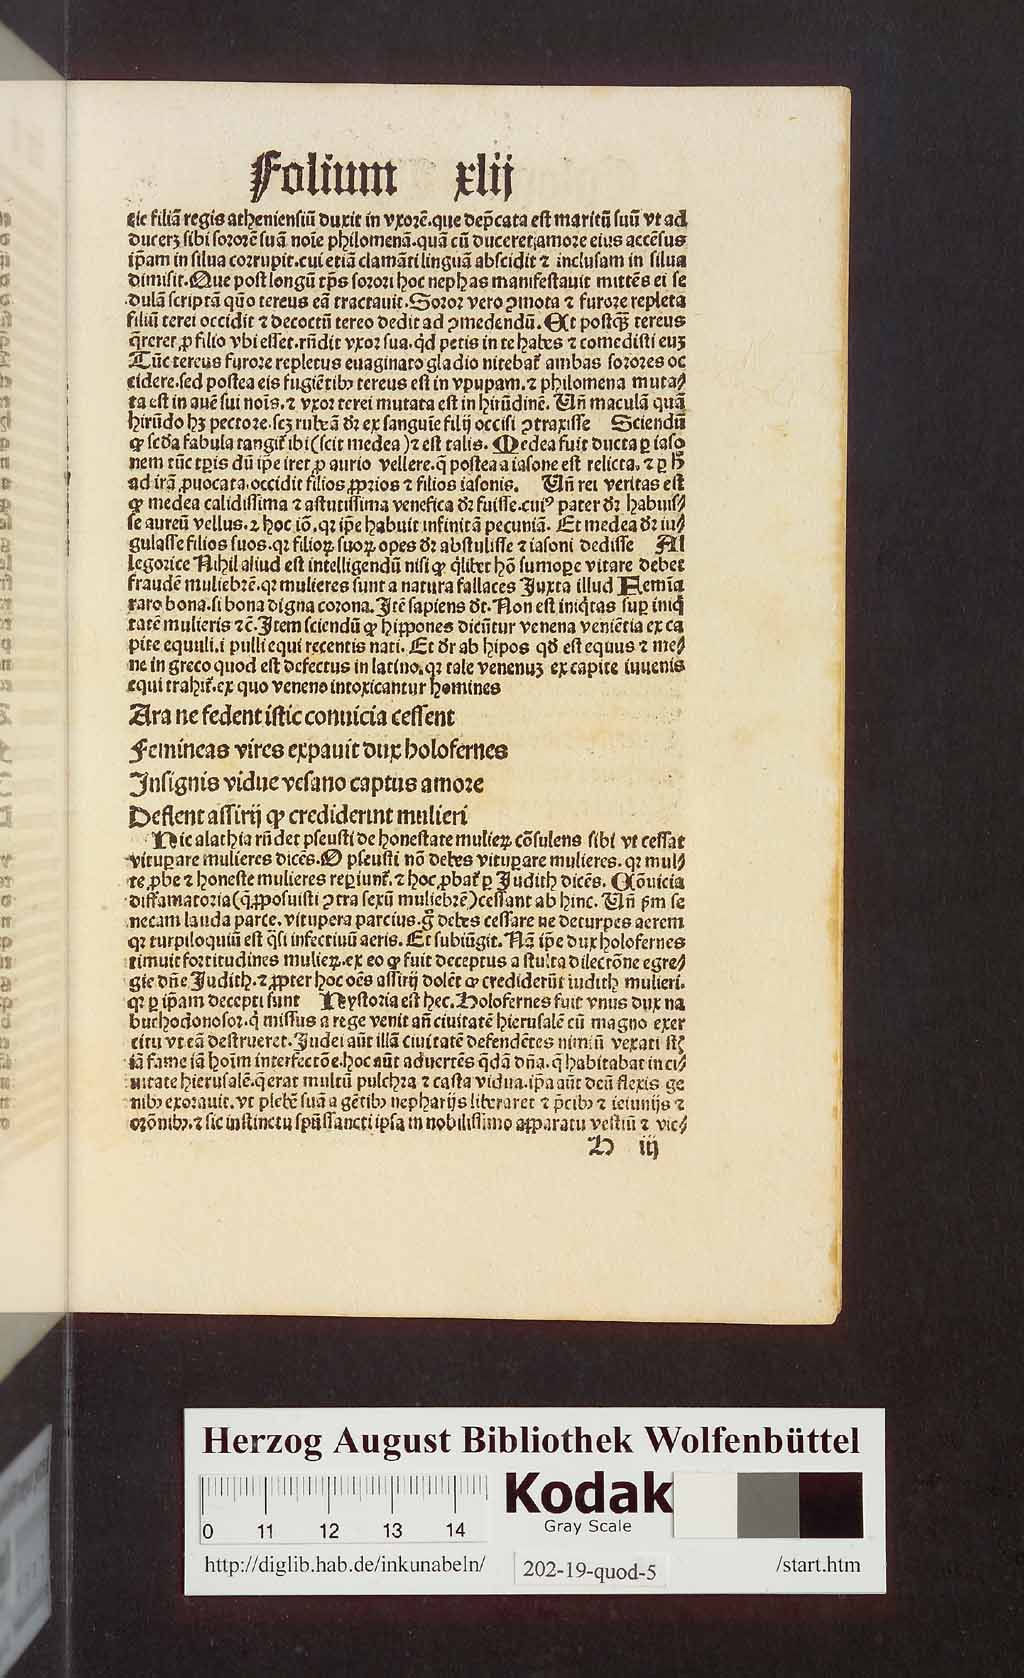 Folium xlij
cie filiā regis atheniensiū duxit in vxorē.que dep̄cata est maritū suū vt ad
ducerꝫ sibi sororē suā noīe philomenā.quā cū duceret;amore eius accēsus
ip̄am in silua corrupit.cui etiā clamāti linguā abscidit ⁊ inclusam in silua
dimisit.Que post longū tp̄s sorori hoc nephas manifestauit mittēs ei se
dulā scriptā quō tereus eā tractauit.Soror vero ꝯmota ⁊ furore repleta
filiū terei occidit ⁊ decoctū tereo dedit ad ꝯmedendū. Et postqꝫ tereus
q̄reret ꝓ filio vbi esset.rn̄dit vxor sua.qd petis in te habes ⁊ comedisti euꝫ
Tūc tereus furore repletus euaginato gladio nitebat̄ ambas sorores oc
cidere.sed postea eis fugiētibꝰ tereus est in vpupam.⁊ philomena muta⸗
ta est in auē sui nois.⁊ vxor terei mutata est in hirūdinē. Un̄ maculā quā
hirūdo hꝫ pectore.scꝫ rubeā dr̄ ex sanguīe filij occisi ꝯtraxisse Sciendū
ꝙ scd̄a fabula tangit̄ ibi(scit medea)⁊ est talis. Medea fuit ducta ꝑ iaso
nem tūc tp̄is dū ip̄e iret ꝓ aurio vellere.q̄ postea a iasone est relicta.⁊ ꝑ h̄
ad irā ꝓuocata.occidit filios ꝓprios ⁊ filios iasonis. Un̄ rei veritas est
ꝙ medea calidissima ⁊ astutissima venefica dr̄ fuisse.cuiꝰ pater dr̄ habuis⸗
se aureū vellus.⁊ hoc iō.qꝛ ip̄e habuit infinitā pecuniā. Et medea dr̄ iu⸗
gulasse filios suos.qꝛ filioꝝ suoꝝ opes dr̄ abstulisse ⁊ iasoni dedisse Al
legorice Nihil aliud est intelligendū nisi ꝙ q̄libet hō sumope vitare debet
fraudē muliebrē.qꝛ mulieres sunt a natura fallaces Juxta illud Femīa
raro bona.si bona digna corona.Itē sapiens dt̄.Non est iniq̄tas suꝑ iniq̄
tatē mulieris ⁊c̄.Item sciendū ꝙ hippones dicūtur venena veniētia ex ca
pite equuli.i pulli equi recentis nati. Et dr̄ ab hipos qd̄ est equus ⁊ me⸗
ne in greco quod est defectus in latino.qꝛ tale venenuꝫ ex capite iuuenis
equi trahit̄.ex quo veneno intoxicantur homines
Ara ne fedent istic conuicia cessent
Femineas vires expauit dux holofernes
Insignis vidue vesano captus amore
Deflent assirij ꝙ crediderint mulieri
Hic alathia rn̄det pseusti de honestate mulieꝝ cōsulens sibi vt cessat
vituꝑare mulieres dicēs.O pseusti nō debes vituꝑare mulieres.qꝛ mul⸗
te ꝓbe ⁊ honeste mulieres reꝑiunt̄.⁊ hoc ꝓbat̄ ꝑ Judith dicēs. Cōuicia
diffamatoria(q̄ ꝓposuisti ꝯtra sexū muliebrē)cessant ab hinc. Un̄ p̄m se
necam lauda parce.vitupera parcius.g̊ debes cessare ne deturpes aerem
qꝛ turpiloquiū est q̄si infectiuū aeris. Et subiūgit. Nā ip̄e dux holofernes
timuit fortitudines mulieꝝ.ex eo ꝙ fuit deceptus a stulta dilectōne egre⸗
gie dn̄e Judith.⁊ ꝓpter hoc oēs assirij dolēt ꝙ crediderūt iudith mulieri.
qꝛ ꝑ ip̄am decepti sunt Hystoria est hec. Holofernes fuit vnus dux na
buchodonosor.q̄ missus a rege venit an̄ ciuitatē hierusalē cū magno exer
citu vt eā destrueret.Judei aūt illā ciuitatē defendētes nimiū vexati sꝫ
iā fame iā hoim interfectōe.hoc aūt aduertēs q̄dā dn̄a.q̄ habitabat in ci⸗
uitate hierusalē.q̄ erat multū pulchra ⁊ casta vidua.ip̄a aūt deū flexis ge
nibꝰ exorauit.vt plebē suā a gētibꝰ nepharijs liberaret ⁊ p̄cibꝰ ⁊ ieiunijs ⁊
orōnibꝰ.⁊ sic instinctu spūssancti ipsa in nobilissimo apparatu vestiū ⁊ vic⸗
H iij
Herzog August Bibliothek Wolfenbüttel
0 11 12 13 14
Kodak
Gray Scale
http://diglib.hab.de/inkunabeln/ 202-19-quod-5 /start.htm